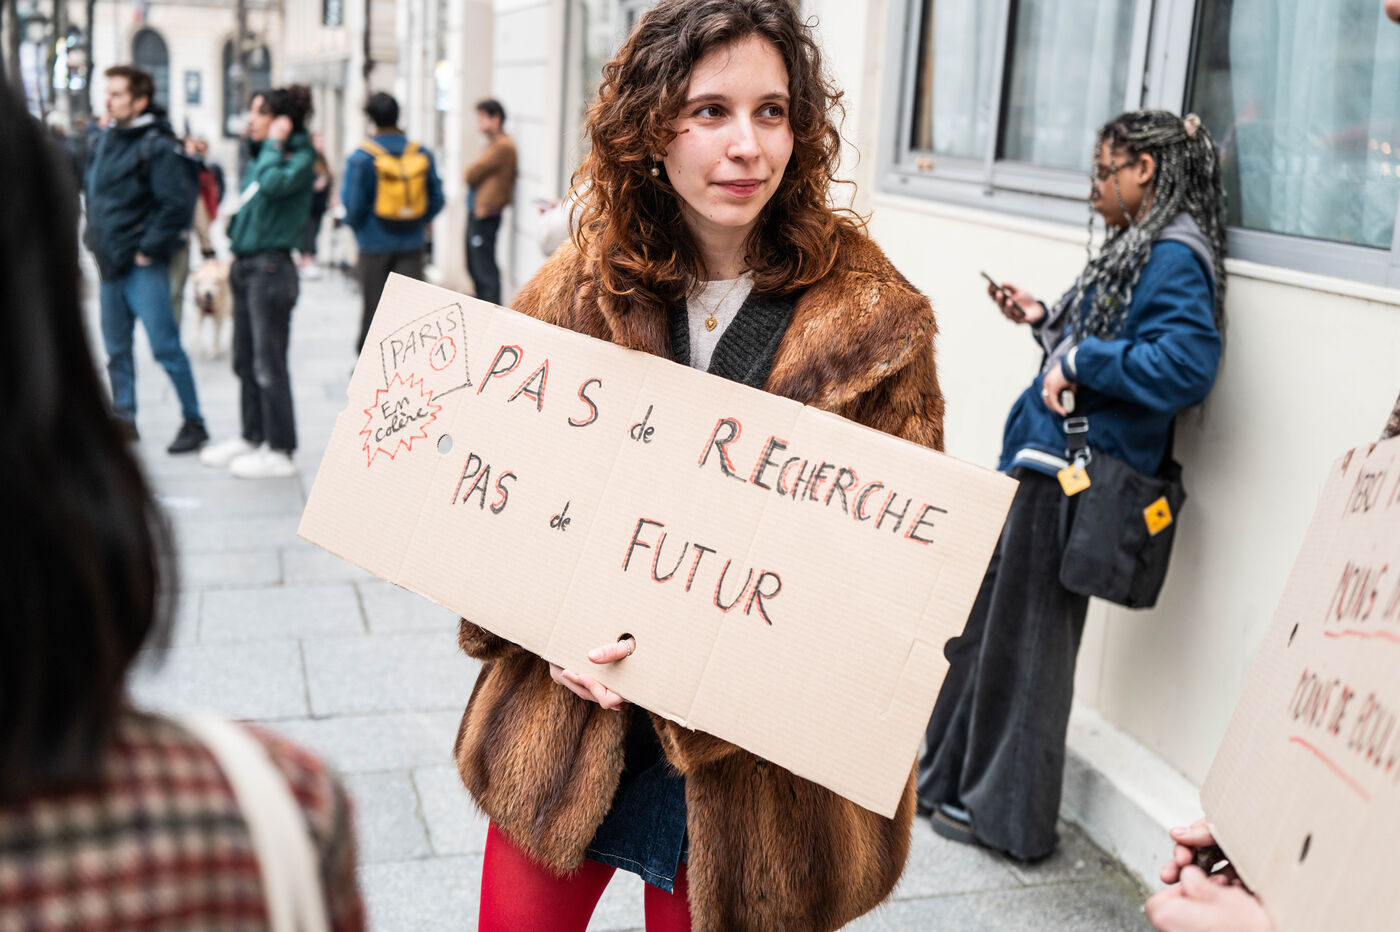 PARIS
1
En
colère
PAS de RECHERCHE
PAS de FUTUR
MERCI
MOINS
MOINS DE